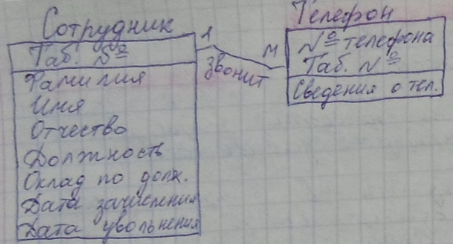 Сотрудник
Таб. №
Фамилия
Имя
Отчество
Должность
Оклад по долж.
Дата зачисления
Дата увольнения
1
звонит
М
Телефон
№ телефона
Таб. №
Сведения о тел.